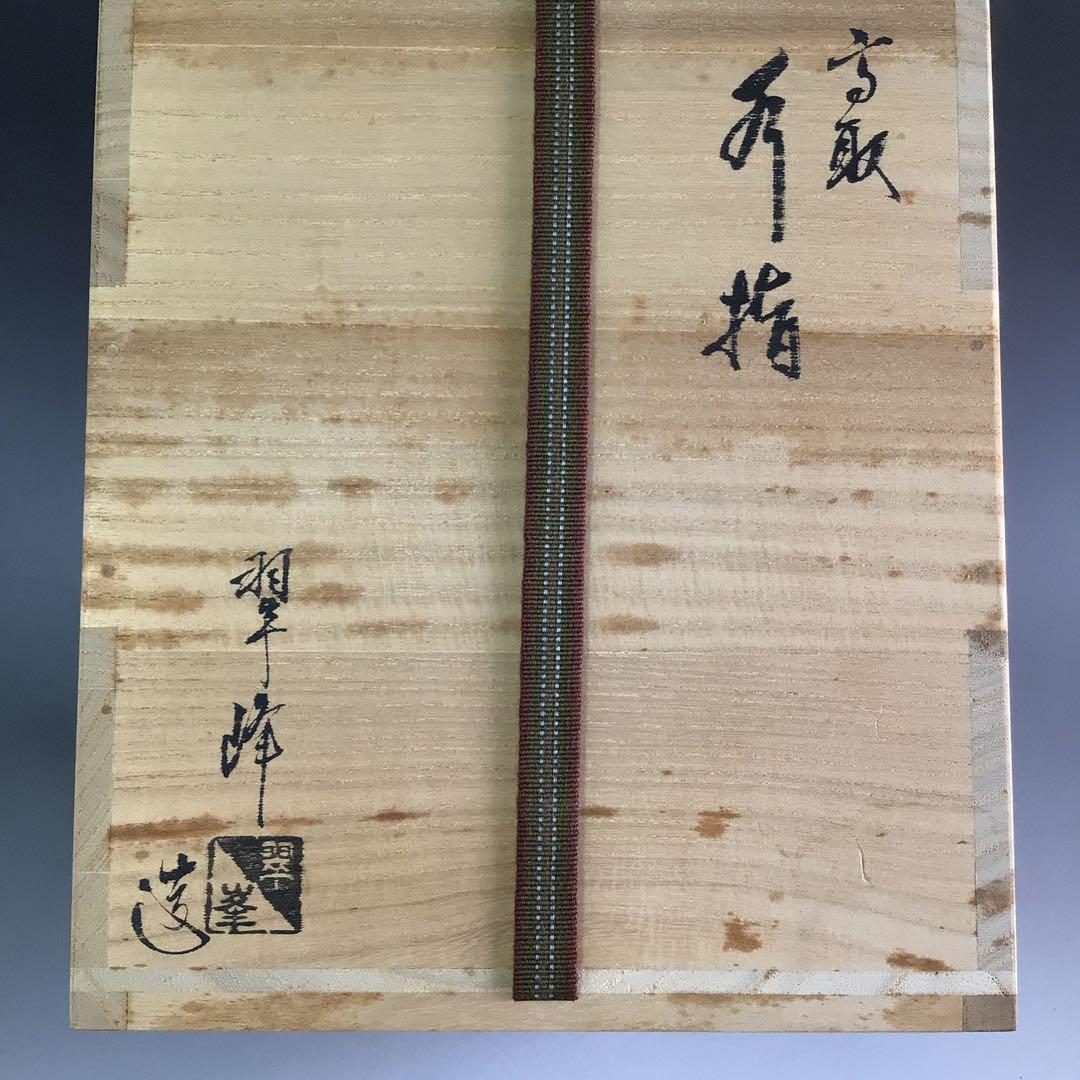 高取
水指
翠峰
造
翠
峯